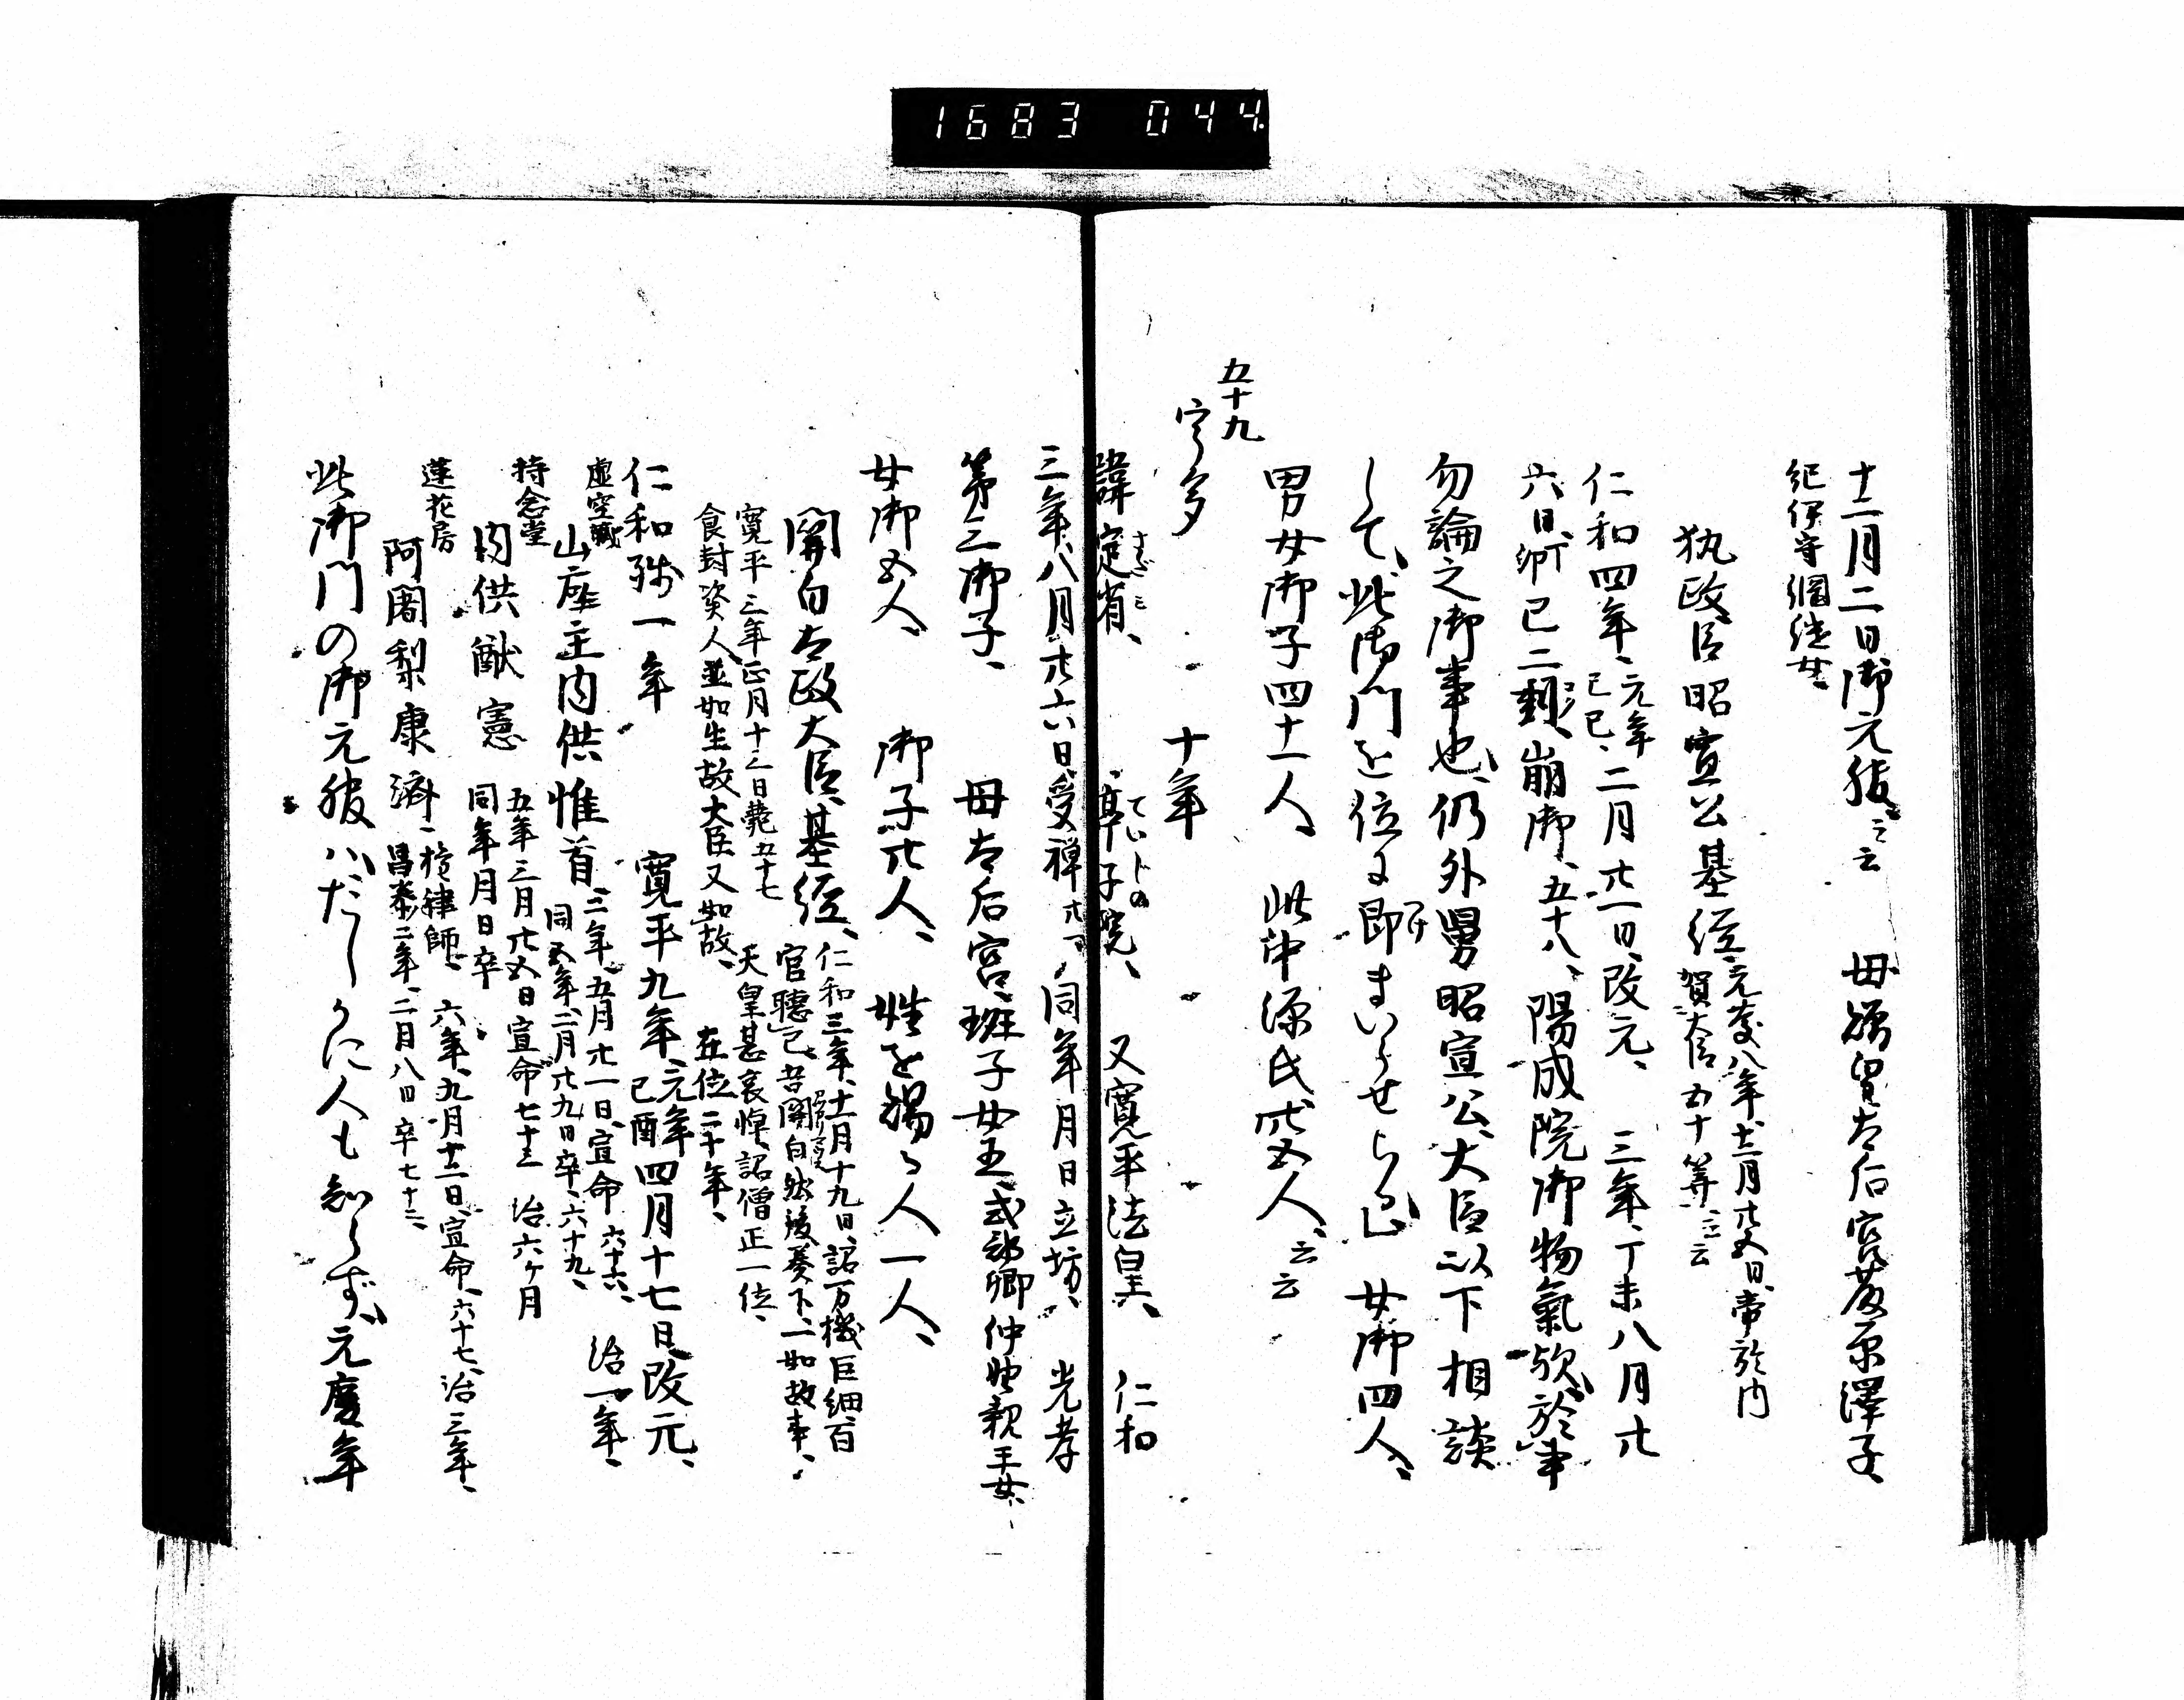 1683 044.
十二月二日御元服、云云 母贈皇太后宮藤原澤子、
紀伊守繼女、
執政臣昭宣公基経、
元慶八年、十二月廿五日、帝於内
賀大臣五十算、云云
仁和四年、元年 二月廿一日、改元、 三年、丁未八月廿
乙巳、
六日、卯 巳二剋、崩御、五十八、陽成院御物氣歟、於事
勿論之御事也、仍外舅昭宣公、大臣以下相談
して、此御門を位に即まいらせらる 女御四人、
男女御子四十一人、 此中源氏卅五人、云云
五十九
宇多 十年
諱定省、 亭子院、 又寛平法皇、 仁和
三年、八月廿六日、受禅、廿一、同年月日立坊、 光孝
第三御子、 母太后宮、班子女王、式部卿仲野親王女、
女御五人、 御子廿人、 姓を賜る人一人、
關白太政大臣、基経、
仁和三年、十一月十九日、詔万機巨細、百
官聽己、皆關白然後奏下、一如故事、
寛平三年、正月十三日薨五十七 天皇甚哀悼、詔僧正一位、
食封資人、並如生故、大臣又如故、 在位二十年、
仁和殘一年 寛平九年、元年 四月十七日、改元、
己酉
虚空藏
山座主内供惟首、
三年、五月廿一日、宣命、六十六、 治一年、
同五年、二月廿九日卒、六十九、
持念堂
内供猷憲
五年三月廿五日宣命七十三 治六ヶ月
同年月日卒
蓮花房
阿闍梨康濟、
権律師、 六年、九月十二日、宣命、六十七、治三年、
昌泰二年、二月八日卒七十二、
此御門の御元服ハ、だしかに人も知らず、元慶年